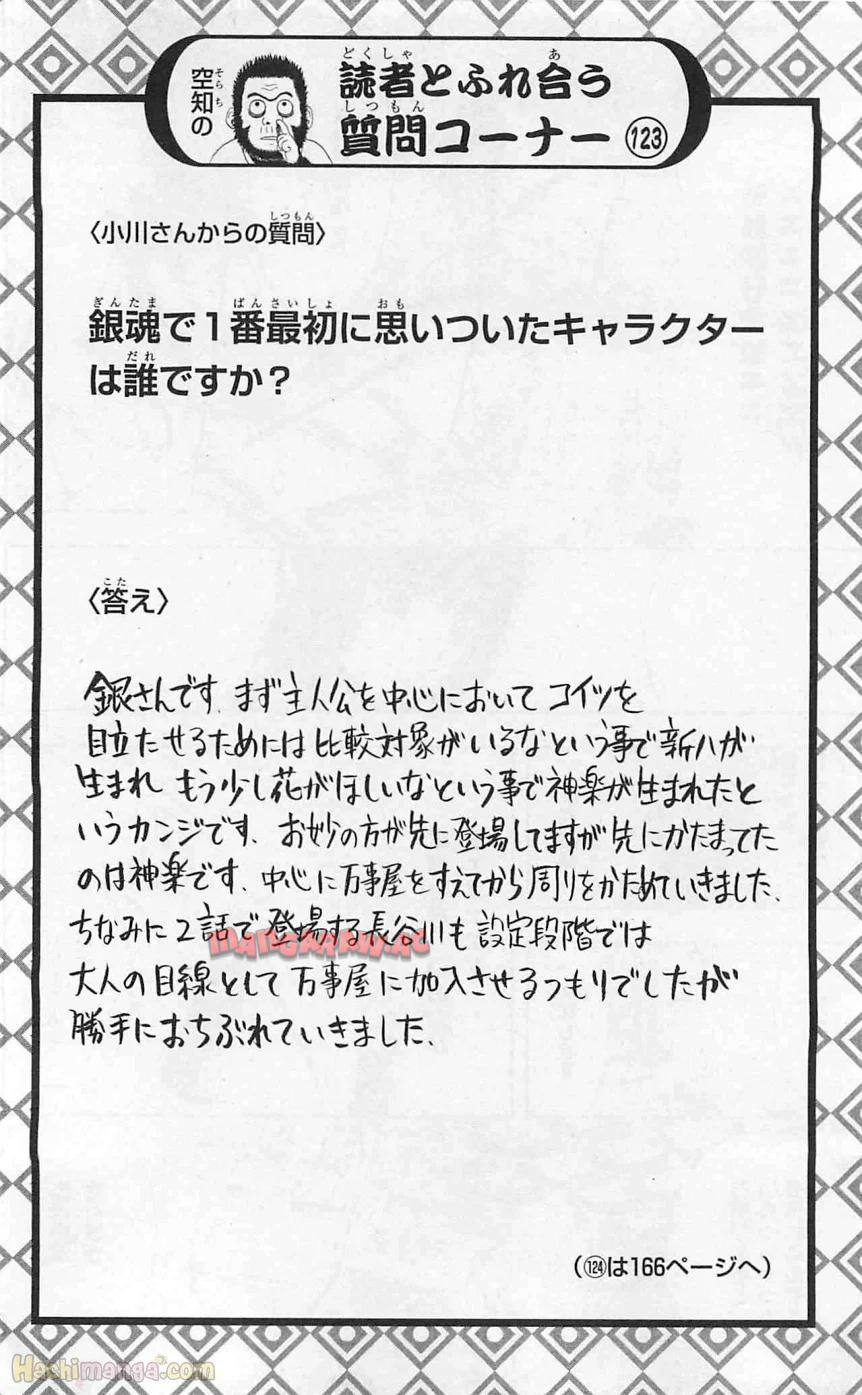 空知の
読者とふれ合う
質問コーナー 123
〈小川さんからの質問〉
銀魂で１番最初に思いついたキャラクター
は誰ですか？
〈答え〉
銀さんです．まず主人公を中心において コイツを
目立たせるためには比較対象がいるなという事で新八が
生まれ もう少し花がほしいなという事で神楽が生まれたと
いうカンジです．お妙の方が先に登場してますが先にかたまってた
のは神楽です．中心に万事屋をすえてから周りをかためていきました．
ちなみに２話で登場する長谷川も設定段階では
大人の目線として万事屋に加入させるつもりでしたが
勝手におちぶれていきました．
（124は166ページへ）
Hachimanga.com